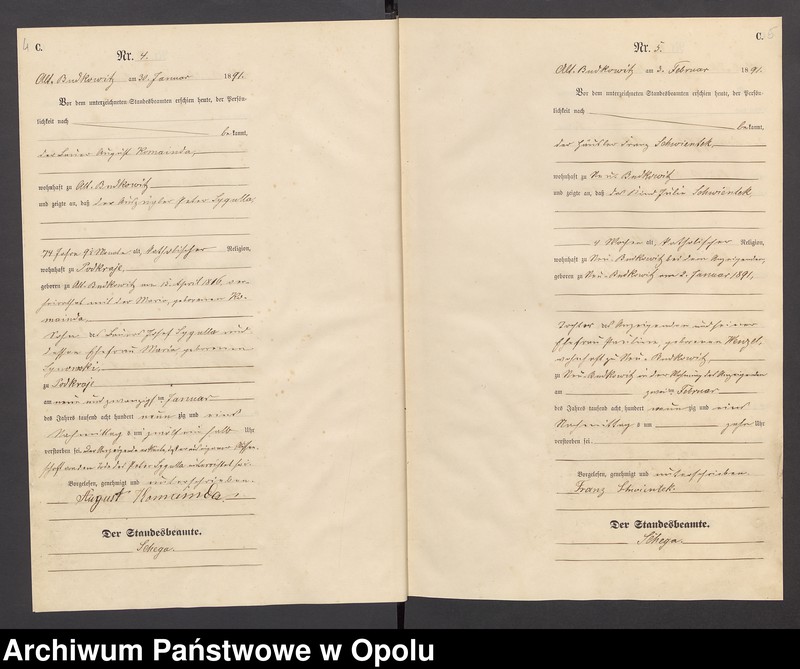 4
C.
Nr. 4.
Alt-Budkowitz am 30. Januar 1891.
Vor dem unterzeichneten Standesbeamten erschien heute, der Persön-
lichkeit nach
bekannt,
der Bauer August Komainda,
wohnhaft zu Alt-Budkowitz
und zeigte an, daß der Auszügler Peter Lygulla,
74 Jahre 9½ Monate alt, katholischer Religion,
wohnhaft zu Podkraje,
geboren zu Alt-Budkowitz am 15. April 1816, ver-
heirathet mit der Maria, geborenen Ko-
mainda,
Sohn des Bauers Josef Lygulla und
dessen Ehefrau Maria, geborenen
zu Podkraje
am neun und zwanzigsten Januar
des Jahres tausend acht hundert neunzig und eins
Nachmittag um zwölf ein halb Uhr
verstorben sei. Der Anzeigende erklärte, daß er aus eigener Wissen-
schaft von dem Tode des Peter Lygulla unterrichtet sei.
Vorgelesen, genehmigt und unterschrieben.
August Komainda
Der Standesbeamte.
Schega.
C. 5
Nr. 5.
Alt-Budkowitz am 3. Februar 1891.
Vor dem unterzeichneten Standesbeamten erschien heute, der Persön-
lichkeit nach
bekannt,
der Häusler Franz Schwientek,
wohnhaft zu Neu-Budkowitz
und zeigte an, daß das Kind Julie Schwientek,
4 Wochen alt, katholischer Religion,
wohnhaft zu Neu-Budkowitz bei dem Anzeigenden,
geboren zu Neu-Budkowitz am 2. Januar 1891,
Tochter des Anzeigenden und seiner
Ehefrau Pauline, geborenen
wohnhaft zu Neu-Budkowitz,
zu Neu-Budkowitz in der Wohnung des Anzeigenden
am zweiten Februar
des Jahres tausend acht hundert neunzig und eins
Nachmittag um zehn Uhr
verstorben sei
Vorgelesen, genehmigt und unterschrieben.
Franz Schwientek.
Der Standesbeamte.
Schega.
Archiwum Państwowe w Opolu